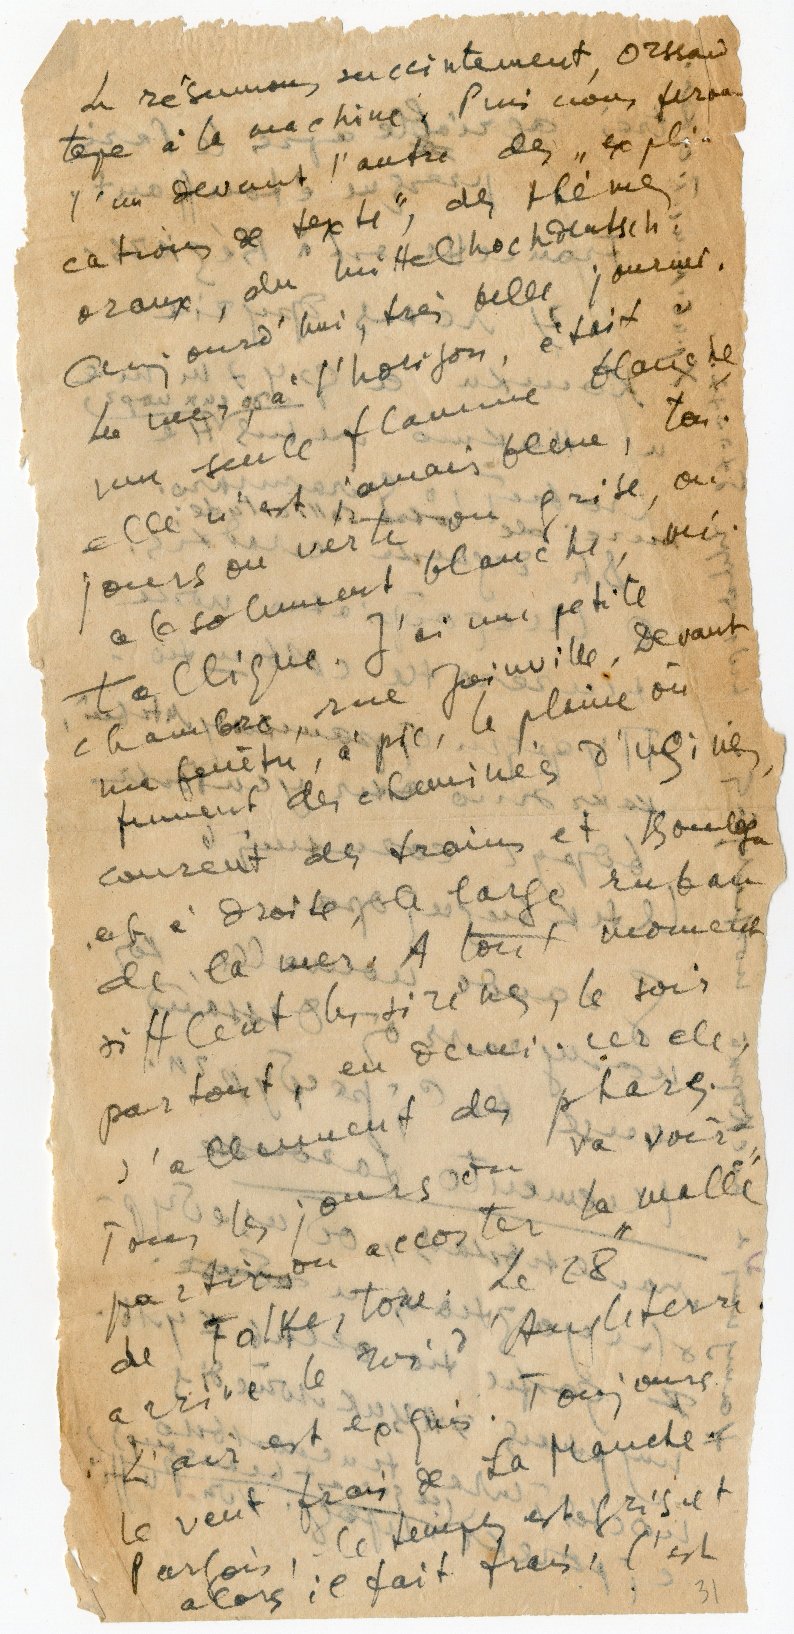 Le résumons succintement, Orssaud
tape à la machine. Puis nous ferons
l'un devant l'autre des „expli-
cations de texte", des thèmes
oraux, du mittelhochdeutsch.
Aujourd'hui, très belle journée.
La mer, à l'horizon, était
une seule flamme blanche
elle n'est jamais bleue, tou-
jours ou verte ou grise, ou
absolument blanche, mé-
tallique. J'ai une petite
chambre, rue Joinville, devant
ma fenêtre, à pic, la plaine où
fument des cheminées d'usines,
courent des trains et
et à droite, le large ruban
de la mer. A tout moment
sifflent les sirènes, le soir
partout, en demi-cercle,
s'allument des phares.
Tous les jours on va voir
partir ou accoster la „malle"
de Folkestone. Le 28
arrive le roi d'Angleterre.
L'air est exquis. Toujours
le vent frais de La Manche.
Parfois, le temps est gris et
alors il fait frais, c'est
31